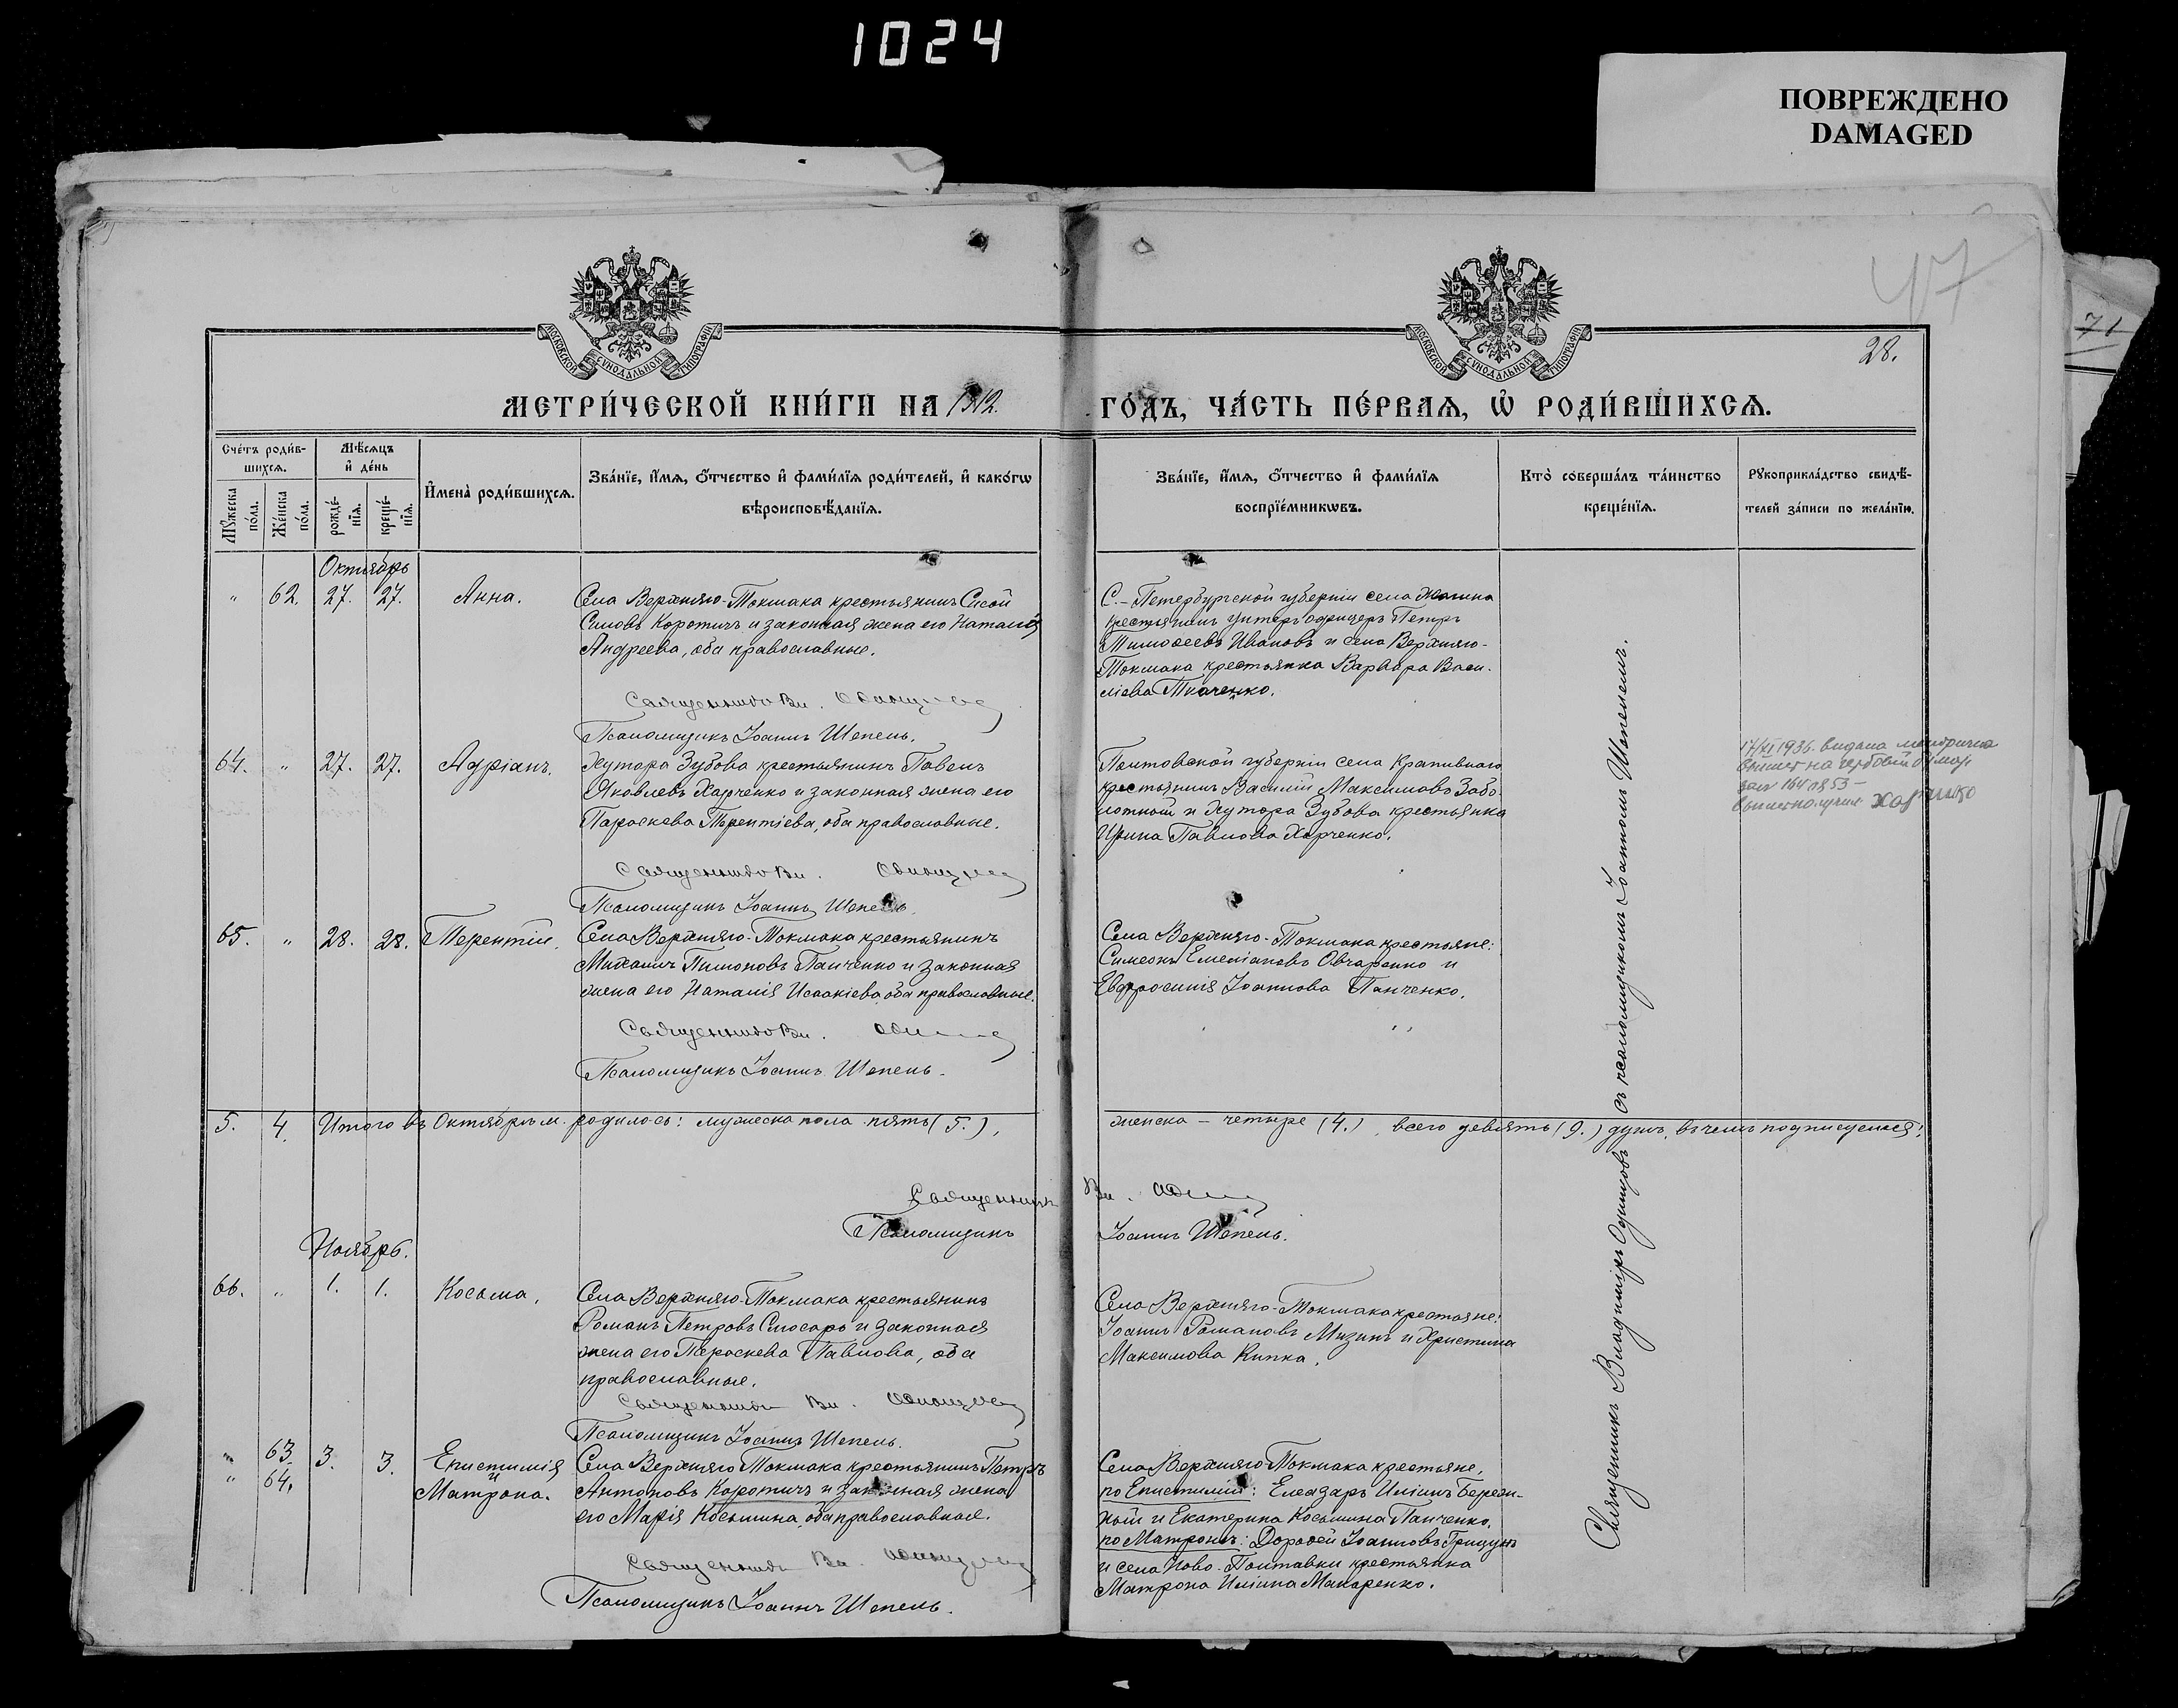 1024
ПОВРЕЖДЕНО
DAMAGED
47
71
28.
МОСКОВСКОЙ СѴНОДАЛЬНОЙ ТИПОГРАФІИ
МОСКОВСКОЙ СѴНОДАЛЬНОЙ ТИПОГРАФІИ
МЕТРИ́ЧЕСКОЙ КНИ́ГИ НА 1912. ГО́ДЪ, ЧА́СТЬ ПЕ́РВАѦ, Ѡ҆ РОДИ́ВШИХСѦ.
Сче́тъ роди́в-
шихсѧ.
Мѣ́сѧцъ
и҆ де́нь
Мꙋ́жеска
по́ла.
Же́нска
по́ла.
рожде́-
нїѧ.
креще́-
нїѧ.
И҆мена̀ роди́вшихсѧ.
Зва́нїе, и҆́мѧ, ѻ҆́тчество и҆ фами́лїѧ роди́телей, и҆ како́гѡ
вѣроисповѣ́данїѧ.
Зва́нїе, и҆́мѧ, ѻ҆́тчество и҆ фами́лїѧ
воспрїе́мникѡвъ.
Кто̀ соверша́лъ та́инство
креще́нїѧ.
Рꙋкоприкла́дство свидѣ́-
телей за́писи по жела́нїю.
Октябрь
" 62. 27. 27. Анна.
Села Верхняго-Токмака крестьянинъ Сисой
Силовъ Коротичъ и законная жена его Наталія
Андреева, оба православные.
Священникъ Вл. Одинцовъ
Псаломщикъ Іоаннъ Шепель.
С.-Петербургской губерніи села
крестьянинъ унтеръ офицеръ Петръ
Тимоѳеевъ Ивановъ и села Верхняго-
Токмака крестьянка Варвара Васи-
ліева Ткаченко.
64. " 27. 27. Адріанъ.
Хутора Зубова крестьянинъ Павелъ
Яковлевъ Харченко и законная жена его
Параскева Терентіева, оба православные.
Священникъ Вл. Одинцовъ
Псаломщикъ Іоаннъ Шепель.
Полтавской губерніи села Крапивнаго
крестьянинъ Василій Максимовъ Забо-
лотный и хутора Зубова крестьянка
Ирина Павлова Харченко.
17/XI 1936. видана метрична
на гербовій
Харченко
65. " 28. 28. Терентій.
Села Верхняго-Токмака крестьянинъ
Михаилъ Пимоновъ Панченко и законная
жена его Наталія Исаакіева, оба православные.
Священникъ Вл. Одинцовъ
Псаломщикъ Іоаннъ Шепель.
Села Верхняго-Токмака крестьяне:
Симеонъ Емеліановъ Овчаренко и
Евфросинія Іоаннова Панченко.
5. 4. Итого въ Октябрѣ м. родилось: мужеска пола пять (5.), женска – четыре (4.), всего девять (9.) душъ, въ чемъ подписуемся:
Священникъ Вл. Одинцовъ
Псаломщикъ Іоаннъ Шепель.
Ноябрь.
66. " 1. 1. Косьма.
Села Верхняго-Токмака крестьянинъ
Романъ Петровъ Слюсарь и законная
жена его Параскева Павлова, оба
православные.
Священникъ Вл. Одинцовъ
Псаломщикъ Іоаннъ Шепель.
Села Верхняго-Токмака крестьяне:
Іоаннъ Романовъ Мизинъ и Христина
Максимова Кипка.
" 63. 3. 3. Епистимія
и
" 64. Матрона.
Села Верхняго Токмака крестьянинъ Петръ
Антоновъ Коротичъ и законная жена
его Марія Косьмина, оба православные.
Священникъ Вл. Одинцовъ
Псаломщикъ Іоаннъ Шепель.
Села Верхняго Токмака крестьяне,
по Епистиміи: Елеазаръ Иліинъ Береж-
ный и Екатерина Косьмина Панченко,
по Матронѣ: Дороѳей Іоанновъ Грицунъ
и села Ново-Полтавки крестьянка
Матрона Иліина Макаренко.
Священникъ Владиміръ Одинцовъ съ псаломщикомъ Іоанномъ Шепелемъ.